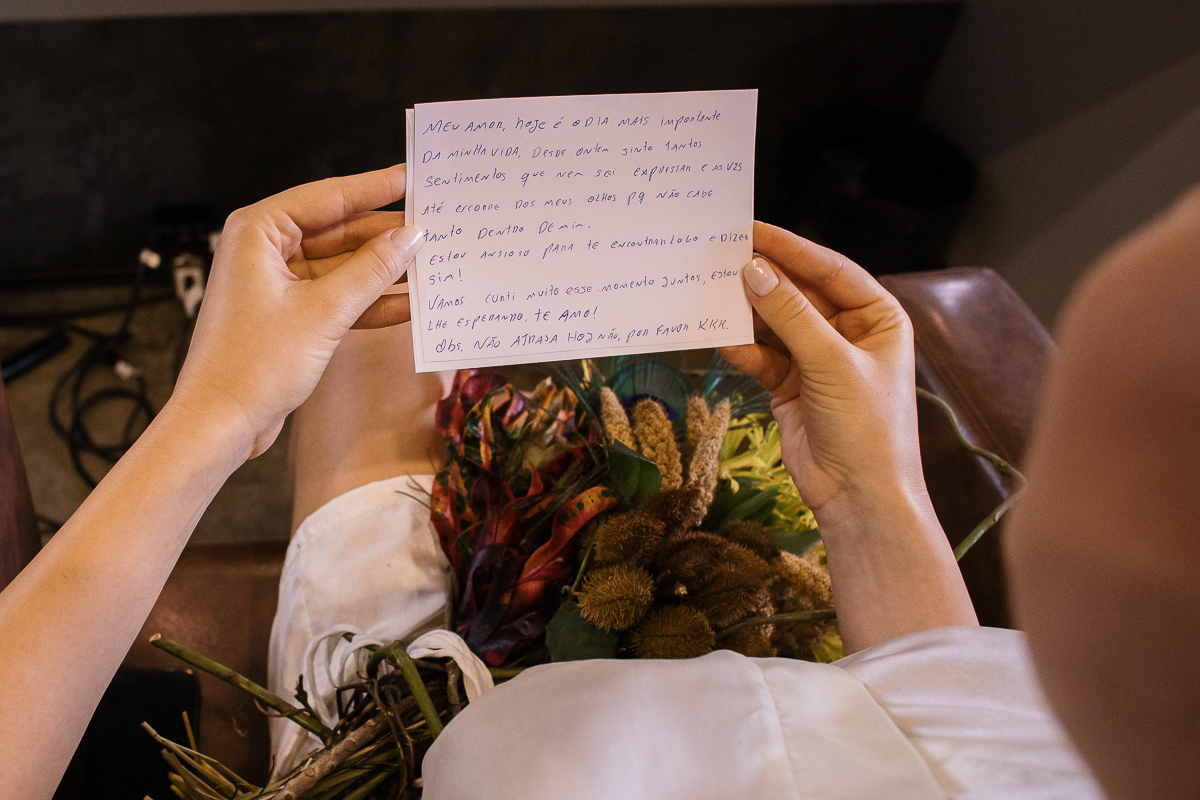 MEU AMOR, hoje é o DIA MAIS importante
DA MINHA VIDA, DESDE ontem sinto tantos
sentimentos que nem sei expressar e as vzs
Até escorre dos meus olhos pq não cabe
tanto DENTRO DE mim.
Estou ansioso para te encontrar logo e dizer
sim!
VAMOS curti muito esse momento juntos, estou
LHE esperando. TE AMO!
Obs. NÃO ATRASA HOJ NÃO, por favor KKR.